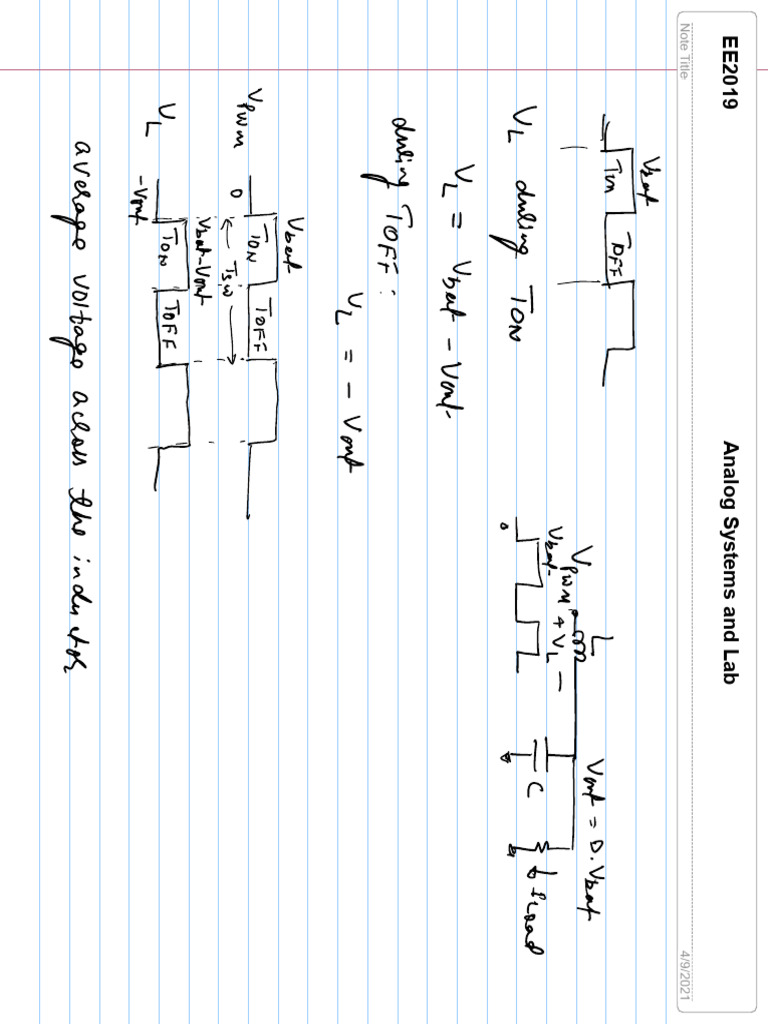 EE2019 Analog Systems and Lab
Note Title 4/9/2021
Vbat
TON TOFF
L
Vout = D. Vbat
VPWM + VL -
Vbat
0
C
iLoad
VL during TON
VL = Vbat - Vout
during TOFF :
VL = - Vout
Vbat
VPWM 0 TON TOFF
TSW
Vbat-Vout
VL -Vout TON TOFF
average voltage across the inductor